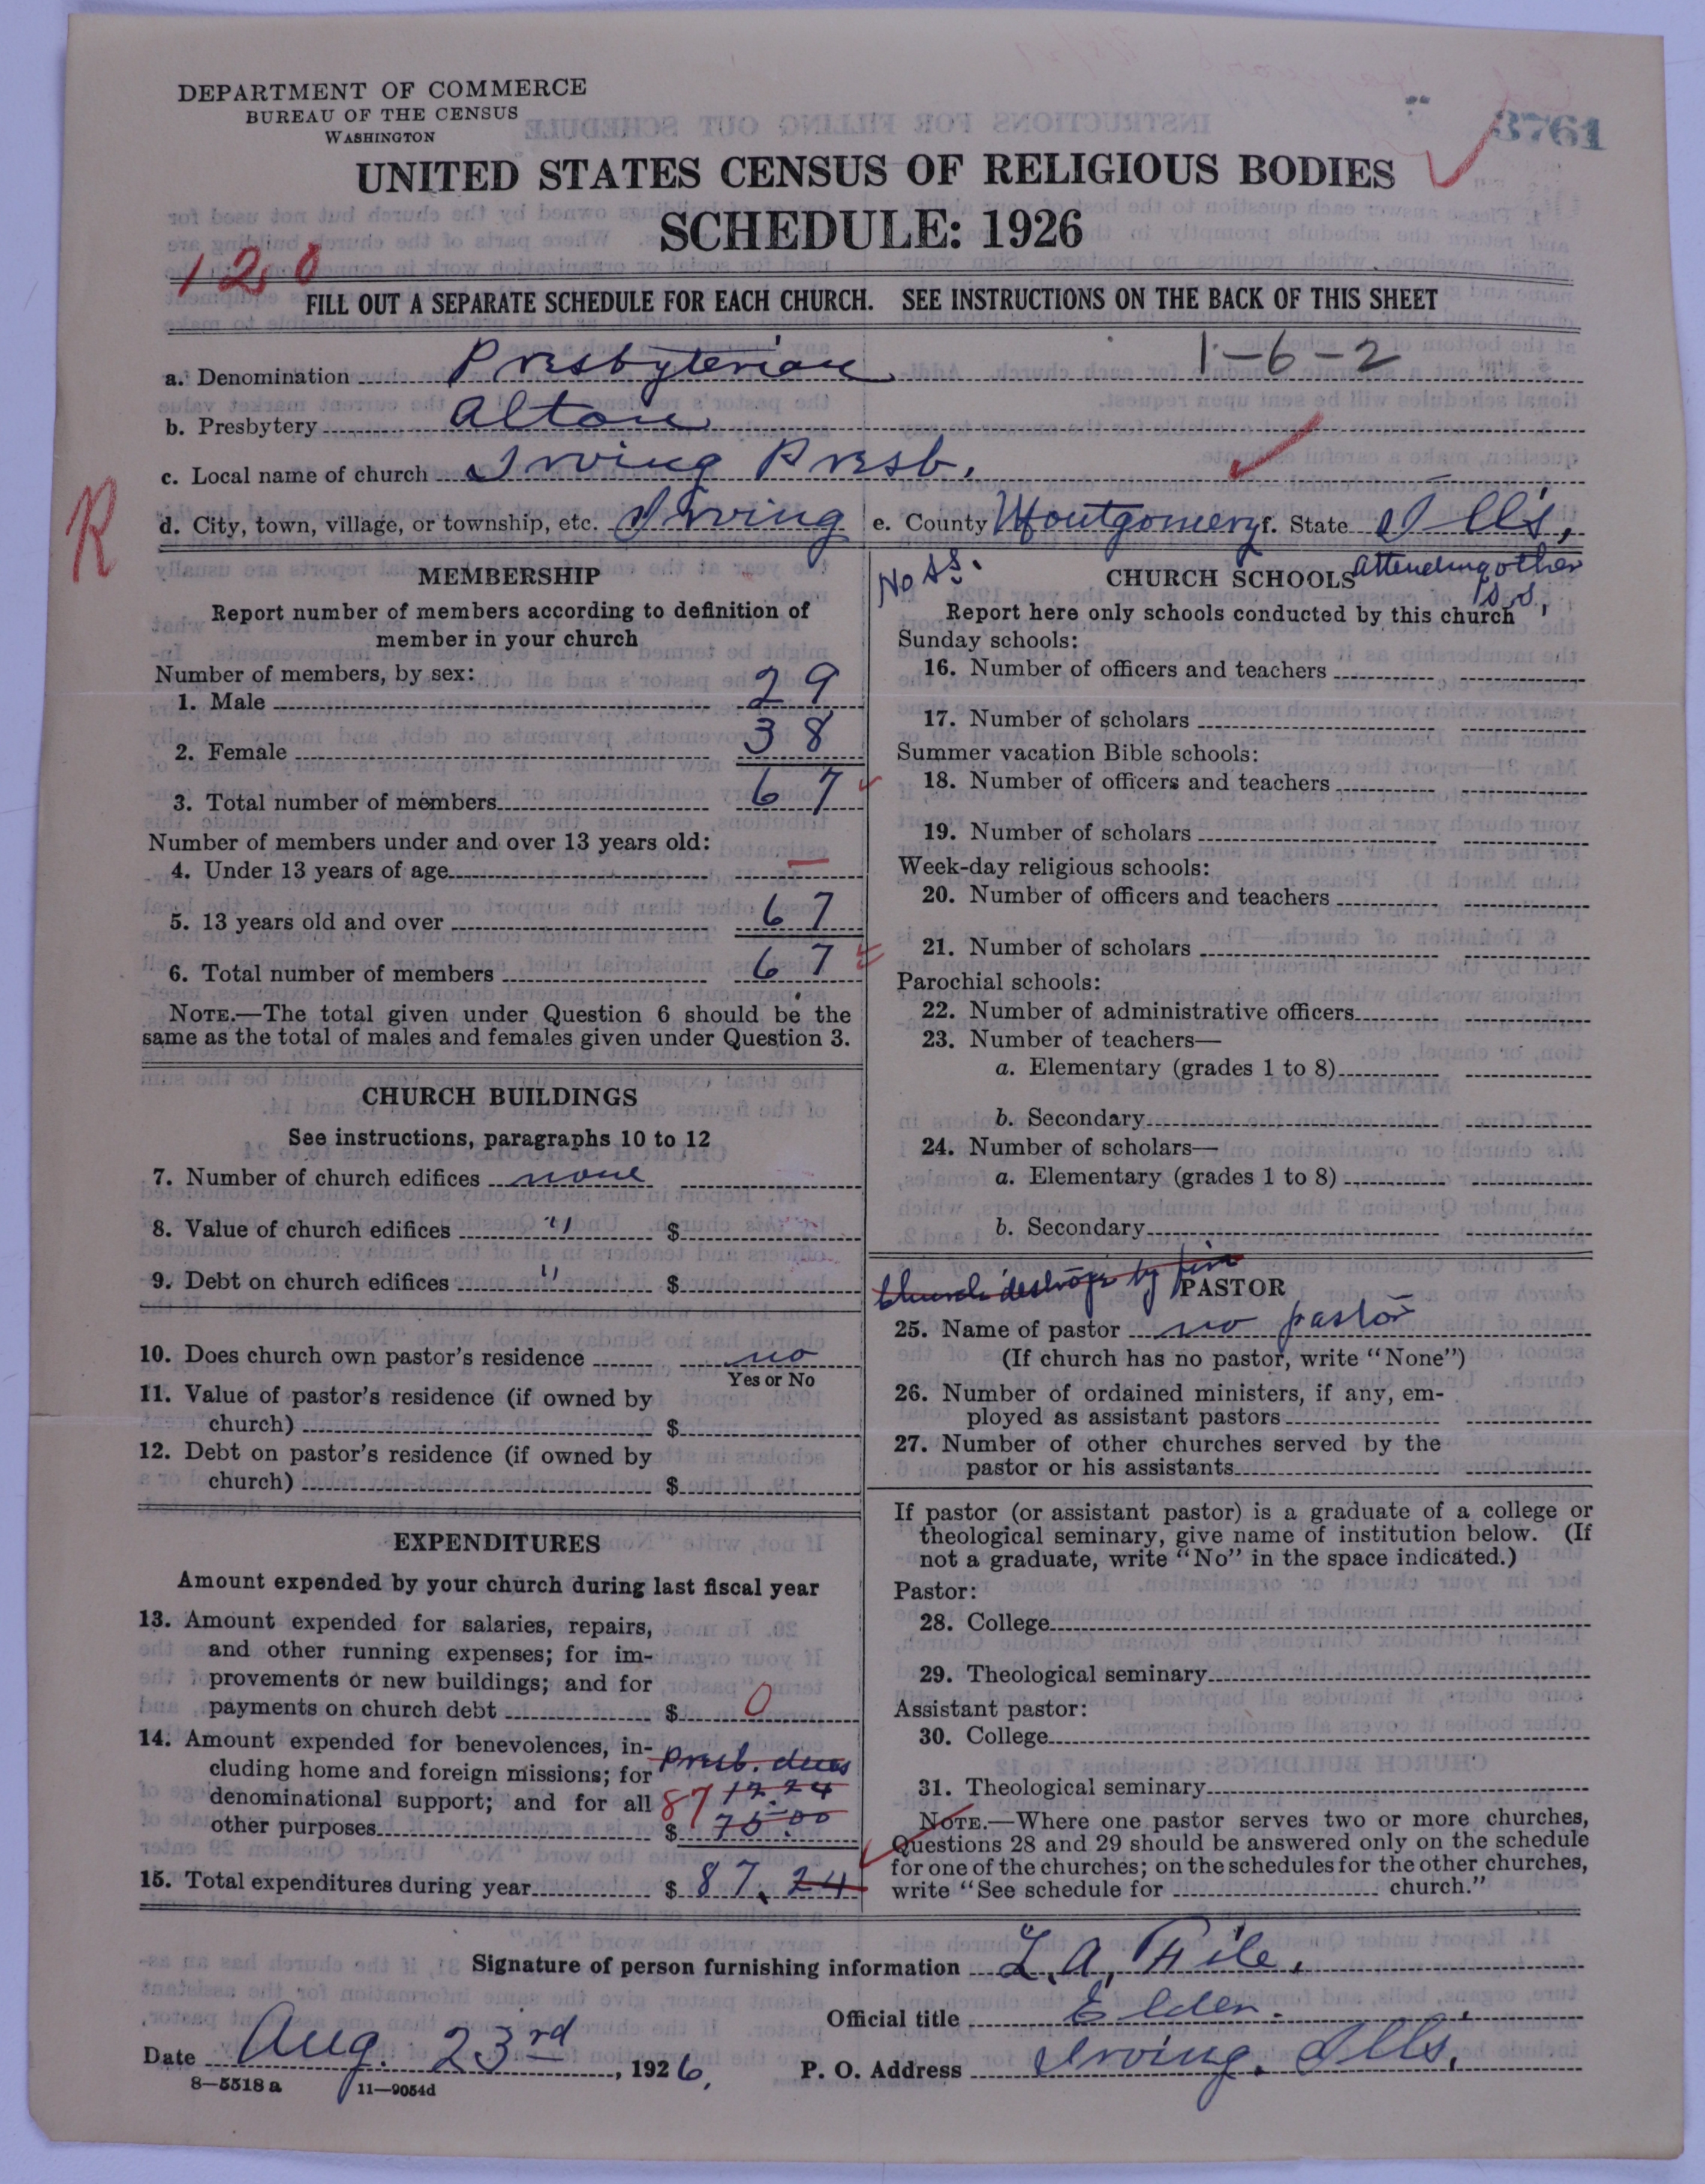 DEPARTMENT OF COMMERCE
BUREAU OF THE CENSUS
WASHINGTON
3761
UNITED STATES CENSUS OF RELIGIOUS BODIES
SCHEDULE: 1926
120
FILL OUT A SEPARATE SCHEDULE FOR EACH CHURCH. SEE INSTRUCTIONS ON THE BACK OF THIS SHEET
1-6-2
a. Denomination Presbyterian
b. Presbytery Alton
c. Local name of church Irving Presb.
R
d. City, town, village, or township, etc. Irving e. County Montgomery f. State Ills,
MEMBERSHIP
Report number of members according to definition of
member in your church
Number of members, by sex:
1. Male 29
2. Female 38
3. Total number of members 67
Number of members under and over 13 years old:
4. Under 13 years of age —
5. 13 years old and over 67
6. Total number of members 67
NOTE.—The total given under Question 6 should be the
same as the total of males and females given under Question 3.
CHURCH BUILDINGS
See instructions, paragraphs 10 to 12
7. Number of church edifices none
8. Value of church edifices " $
9. Debt on church edifices " $
10. Does church own pastor's residence no
Yes or No
11. Value of pastor's residence (if owned by
church) $
12. Debt on pastor's residence (if owned by
church) $
EXPENDITURES
Amount expended by your church during last fiscal year
13. Amount expended for salaries, repairs,
and other running expenses; for im-
provements or new buildings; and for
payments on church debt $ 0
14. Amount expended for benevolences, in-
cluding home and foreign missions; for Presb. dues
denominational support; and for all 87 12.24
other purposes $ 75.00
15. Total expenditures during year $ 87.24
No SS.
CHURCH SCHOOLS attending other
S.S,
Report here only schools conducted by this church
Sunday schools:
16. Number of officers and teachers
17. Number of scholars
Summer vacation Bible schools:
18. Number of officers and teachers
19. Number of scholars
Week-day religious schools:
20. Number of officers and teachers
21. Number of scholars
Parochial schools:
22. Number of administrative officers
23. Number of teachers—
a. Elementary (grades 1 to 8)
b. Secondary
24. Number of scholars—
a. Elementary (grades 1 to 8)
b. Secondary
Church destroye by fire
PASTOR
25. Name of pastor no pastor
(If church has no pastor, write "None")
26. Number of ordained ministers, if any, em-
ployed as assistant pastors
27. Number of other churches served by the
pastor or his assistants
If pastor (or assistant pastor) is a graduate of a college or
theological seminary, give name of institution below. (If
not a graduate, write "No" in the space indicated.)
Pastor:
28. College
29. Theological seminary
Assistant pastor:
30. College
31. Theological seminary
NOTE.—Where one pastor serves two or more churches,
Questions 28 and 29 should be answered only on the schedule
for one of the churches; on the schedules for the other churches,
write "See schedule for church."
Signature of person furnishing information L. A.
Official title Elder.
Date Aug. 23rd, 1926, P. O. Address Irving, Ills,
8—5518 a 11—9054d